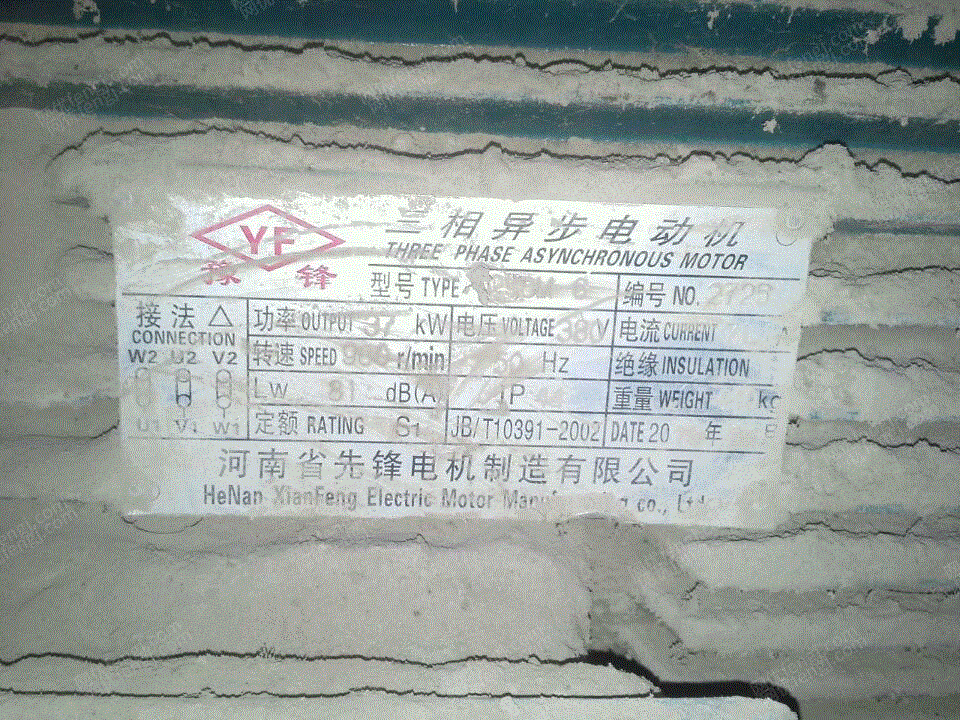 YF
豫 锋
三相异步电动机
THREE PHASE ASYNCHRONOUS MOTOR
型号 TYPE 编号 NO.
接法 △ 功率 OUTPUT 37 kW 电压 VOLTAGE 380V 电流 CURRENT A
CONNECTION
W2 U2 V2 转速 SPEED r/min 50 Hz 绝缘 INSULATION
LW 81 dB(A) IP 44 重量 WEIGHT kg
U1 V1 W1 定额 RATING S1 JB/T10391-2002 DATE 20 年
河南省先锋电机制造有限公司
HeNan XianFeng Electric Motor co., Ltd